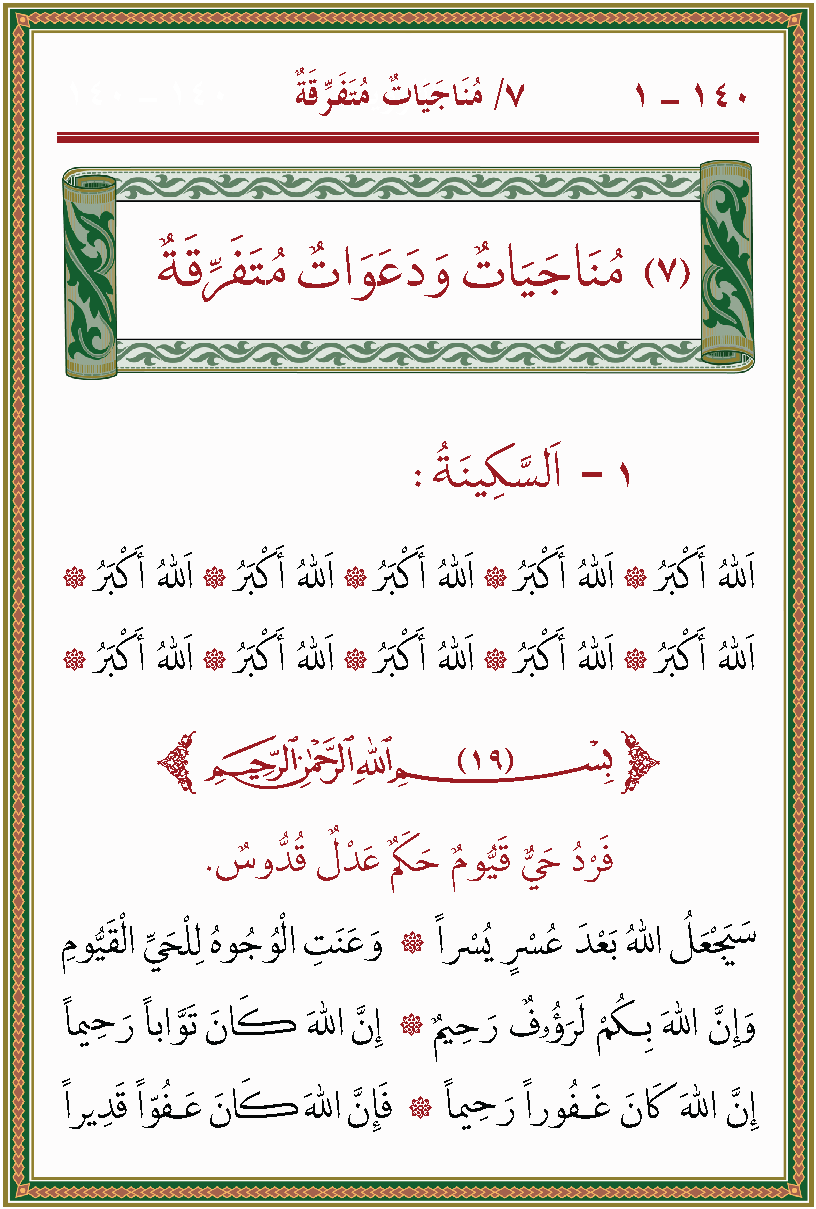 ١٤٠ – ١ ٧/ مُنَاجَيَاتٌ مُتَفَرِّقَةٌ
(٧) مُنَاجَيَاتٌ وَدَعَوَاتٌ مُتَفَرِّقَةٌ
١ – اَلسَّكِينَةُ :
اَللهُ أَكْبَرُ ۞ اَللهُ أَكْبَرُ ۞ اَللهُ أَكْبَرُ ۞ اَللهُ أَكْبَرُ ۞ اَللهُ أَكْبَرُ ۞
اَللهُ أَكْبَرُ ۞ اَللهُ أَكْبَرُ ۞ اَللهُ أَكْبَرُ ۞ اَللهُ أَكْبَرُ ۞ اَللهُ أَكْبَرُ ۞
بِسْــمِ (١٩) ٱللهِ ٱلرَّحْمٰنِ ٱلرَّحِيــمِ
فَرْدُ حَيٌّ قَيُّومٌ حَكَمٌ عَدْلٌ قُدُّوسٌ.
سَيَجْعَلُ اللهُ بَعْدَ عُسْرٍ يُسْراً ۞ وَعَنَتِ الْوُجُوهُ لِلْحَيِّ الْقَيُّومِ
وَإِنَّ اللهَ بِــكُمْ لَرَؤُوفٌ رَحِيمٌ ۞ إِنَّ اللهَ كَـانَ تَوَّاباً رَحِيماً
إِنَّ اللهَ كَانَ غَــفُوراً رَحِيماً ۞ فَإِنَّ اللهَ كَـانَ عَــفُوّاً قَدِيراً